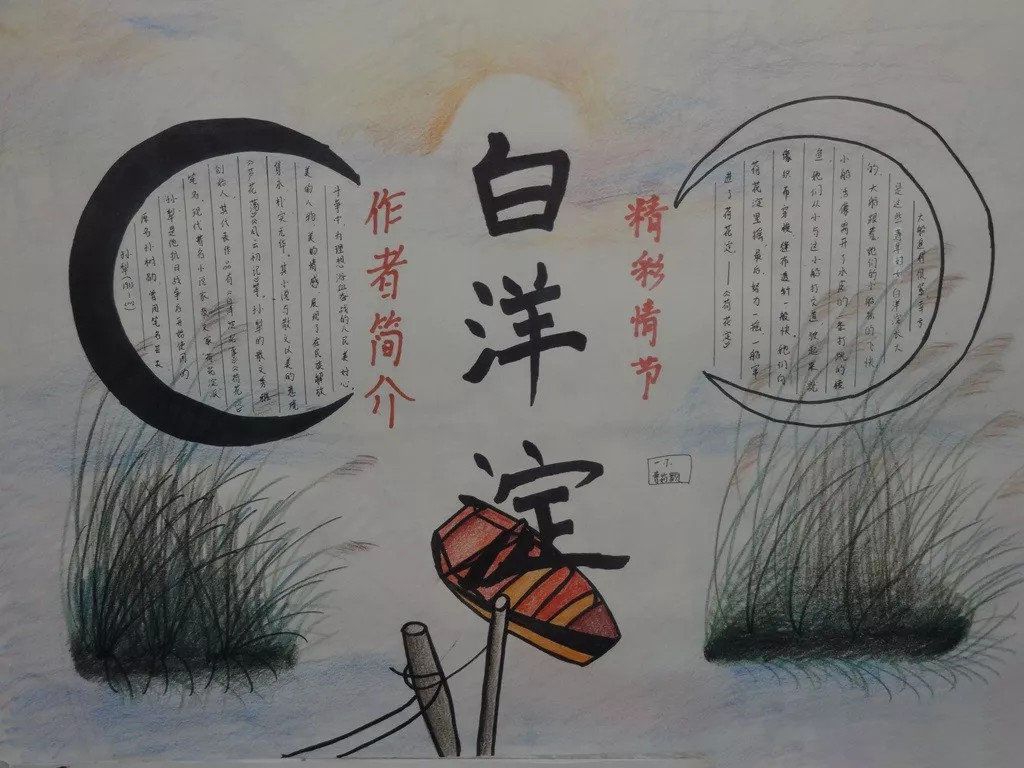 白洋淀
作者简介
孙犁
原名孙树勋 曾用笔名芸夫
孙犁是他抗日战争后开始使用的
笔名,现代著名小说家、散文家、荷花淀派
创始人,其代表作品有《白洋淀纪事》《荷花淀》
《芦花荡》《风云初记》等。孙犁的散文素雅
隽永朴实无华,其小说与散文以美的意境
美的人物 美的情感 展现了在民族解放
斗争中为理想浴血奋战的人民美好心
精彩情节
大船追得很紧幸亏
是这些青年妇女白洋淀长大
的,大船跟着她们的小船飞快
小船活像离开了水皮的一条打跳的梭
鱼,她们从小与这小船打交道 驶起来就
像织布穿梭 缝衣透针一般快,她们向
荷花淀里摇,最后努力一摇,一船窜
进了荷花淀——《荷花淀》